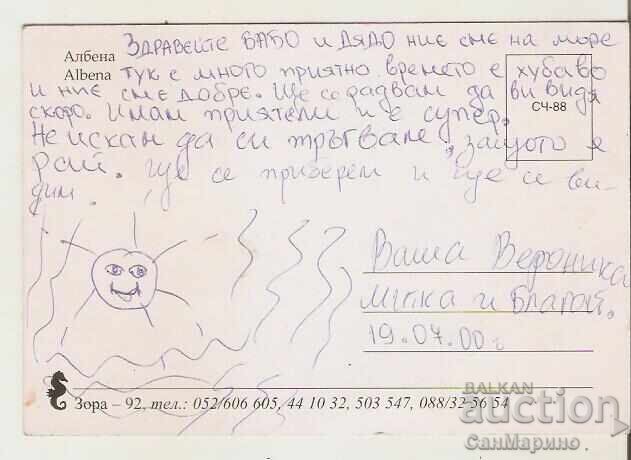 Албена
Albena
ЗДРАВЕЙТЕ БАБО И ДЯДО НИЕ СМЕ НА МОРЕ
ТУК Е МНОГО ПРИЯТНО ВРЕМЕТО Е ХУБАВО
И НИЕ СМЕ ДОБРЕ. ЩЕ СЕ РАДВАМ ДА ВИ ВИДЯ
СКОРО. ИМАМ ПРИЯТЕЛИ И Е СУПЕР.
НЕ ИСКАМ ДА СИ ТРЪГВАМЕ, ЗАЩОТО Е
РАЙ. ЩЕ СЕ ПРИБЕРЕМ И ЩЕ СЕ ВИ-
ДИМ.
СЧ-88
Ваша Вероника
и Благой.
19.07.00 г
Зора – 92, тел.: 052/606 605, 44 10 32, 503 547, 088/32 56 54
BALKAN
auction
СанМарино